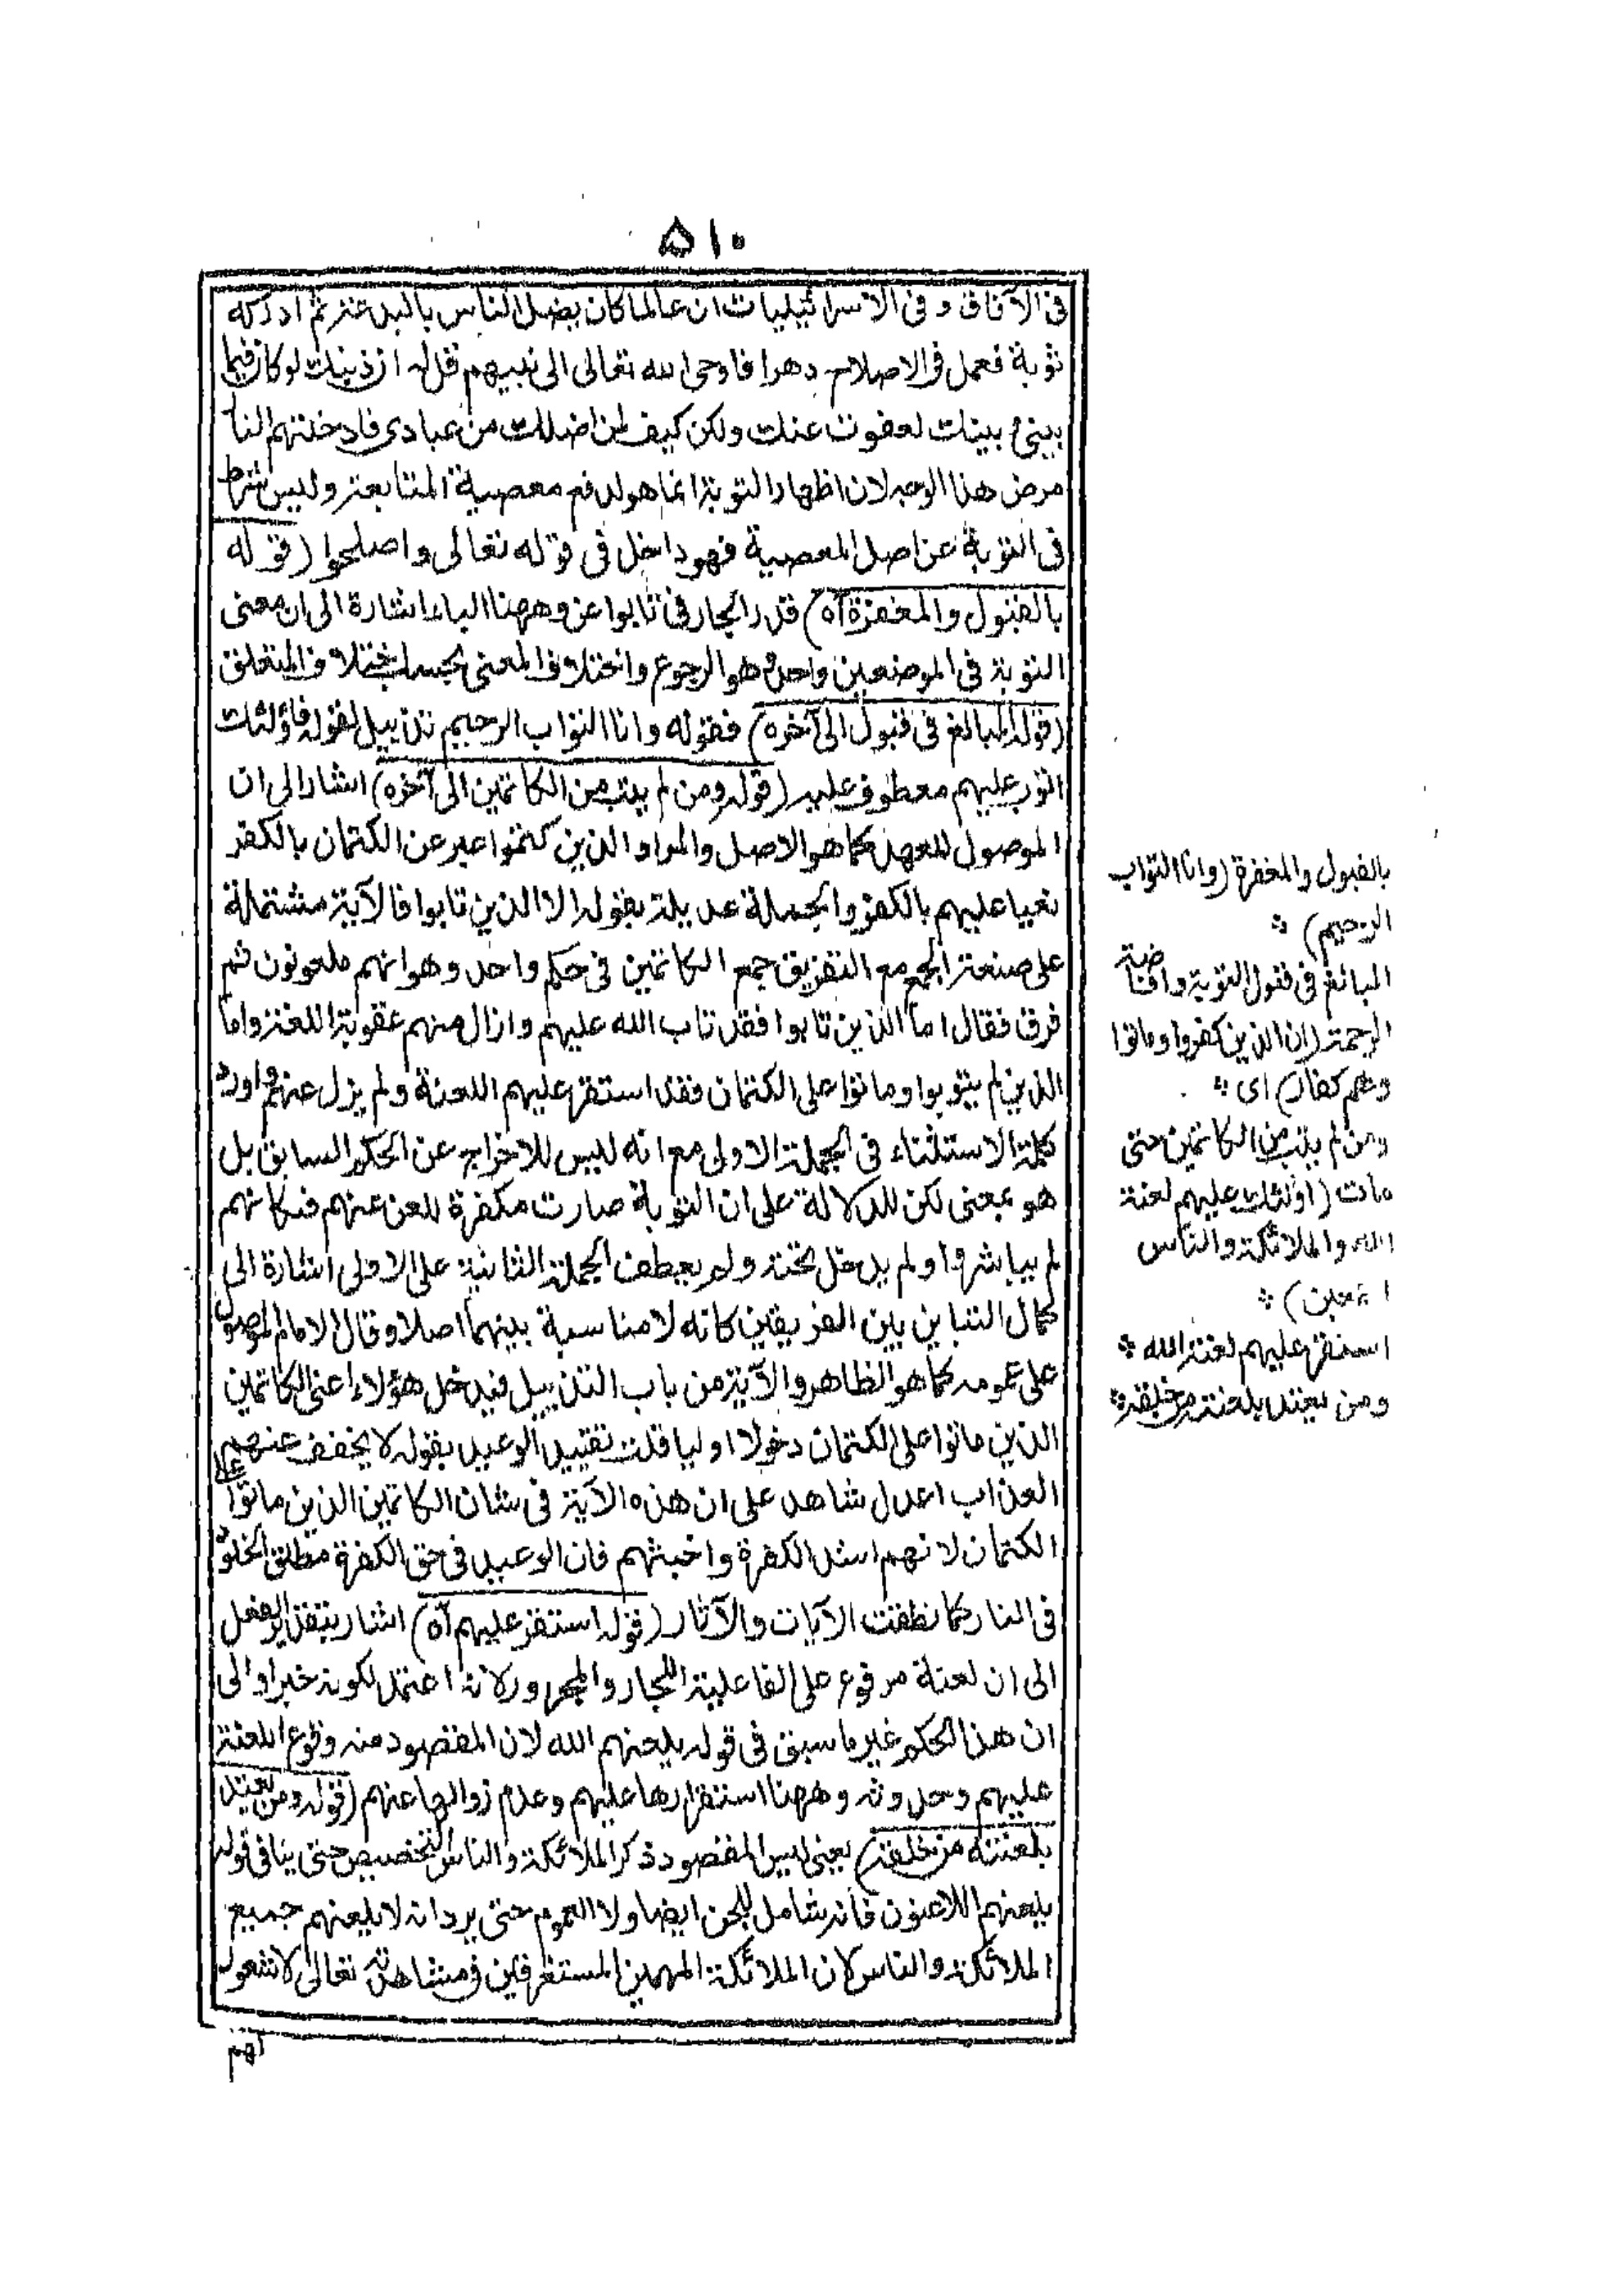 ٥١٠
فى الآفاق وفى الاسرائيليات ان عالما كان يضل الناس بالبدعة ثم ادركه
توبة فعمل فى الاصلاح دهرا فاوحى الله تعالى الى نبيهم قل له ان ذنبك لو كان فيما
بينى وبينك لعفوت عنك ولكن كيف لمن اضللت من عبادى فادخلتهم النا
مرض هذا الوجه لان اظهار التوبة انما هو لدفع معصية المتابعة وليس شرط
فى التوبة عن اصل المعصية فهو داخل فى قوله تعالى واصلحوا (قوله
بالقبول والمغفرة آه) قدر الجار فى تابوا عن وههنا الباء اشارة الى ان معنى
التوبة فى الموضعين واحد هو الرجوع واختلاف المعنى بحسب اختلاف المتعلق
(قوله المبالغ فى قبول الى آخره) فقوله وانا التواب الرحيم تذييل لقوله فاولئك
اتوب عليهم معطوف عليه (قوله ومن لم يتب من الكاتمين الى آخره) اشار الى ان
الموصول للعهد كما هو الاصل والمراد الذين كتموا عبر عن الكتمان بالكفر
نعيا عليهم بالكفر والجملة عديلة بقوله الا الذين تابوا فالآية مشتملة
على صنعة الجمع مع التفريق جمع الكاتمين فى حكم واحد وهو انهم ملعونون ثم
فرق فقال اما الذين تابوا فقد تاب الله عليهم وازال منهم عقوبة اللعنة واما
الذين لم يتوبوا وماتوا على الكتمان فقد استقر عليهم اللعنة ولم يزل عنهم واورد
كلمة الاستثناء فى الجملة الاولى مع انه ليس للاخراج عن الحكم السابق بل
هو بمعنى لكن للدلالة على ان التوبة صارت مكفرة للعن عنهم فكانهم
لم يباشروا ولم يدخل تحته ولم يعطف الجملة الثانية على الاولى اشارة الى
كمال التباين بين الفريقين كانه لا مناسبة بينهما اصلا وقال الامام الموصول
على عمومه كما هو الظاهر والآية من باب التذييل فيدخل هؤلاء اعنى الكاتمين
الذين ماتوا على الكتمان دخولا اوليا قلت تقييد الوعيد بقوله لا يخفف عنهم
العذاب اعدل شاهد على ان هذه الآية فى شان الكاتمين الذين ماتوا على
الكتمان لانهم اشد الكفرة واخبثهم فان الوعيد فى حق الكفرة مطلق الخلود
فى النار كما نطقت الآيات والآثار (قوله استقر عليهم آه) اشار بتقدير الفعل
الى ان لعنة مرفوع على الفاعلية للجار والمجرور لانه اعتمد لكونه خبرا والى
ان هذا الحكم غير ما سبق فى قوله يلعنهم الله لان المقصود منه وقوع اللعنة
عليهم وحدوثه وههنا استقرارها عليهم وعدم زوالها عنهم (قوله ومن يعتد
بلعنته من خلقه) يعنى ليس المقصود ذكر الملائكة والناس التخصيص حتى ينافى قوله
يلعنهم اللاعنون فانه شامل للجن ايضا ولا العموم حتى يرد انه لا يلعنهم جميع
الملائكة والناس لان الملائكة المهيمين المستغرقين فى مشاهدته تعالى لا شعور
لهم
بالقبول والمغفرة (وانا التواب
الرحيم) *
المبالغ فى قبول التوبة وافاضة
الرحمة (ان الذين كفروا وماتوا
وهم كفار) اى *
ومن لم يتب من الكاتمين حتى
مات (اولئك عليهم لعنة
الله والملائكة والناس
اجمعين) *
استقر عليهم لعنة الله *
ومن يعتد بلعنته من خلقه *